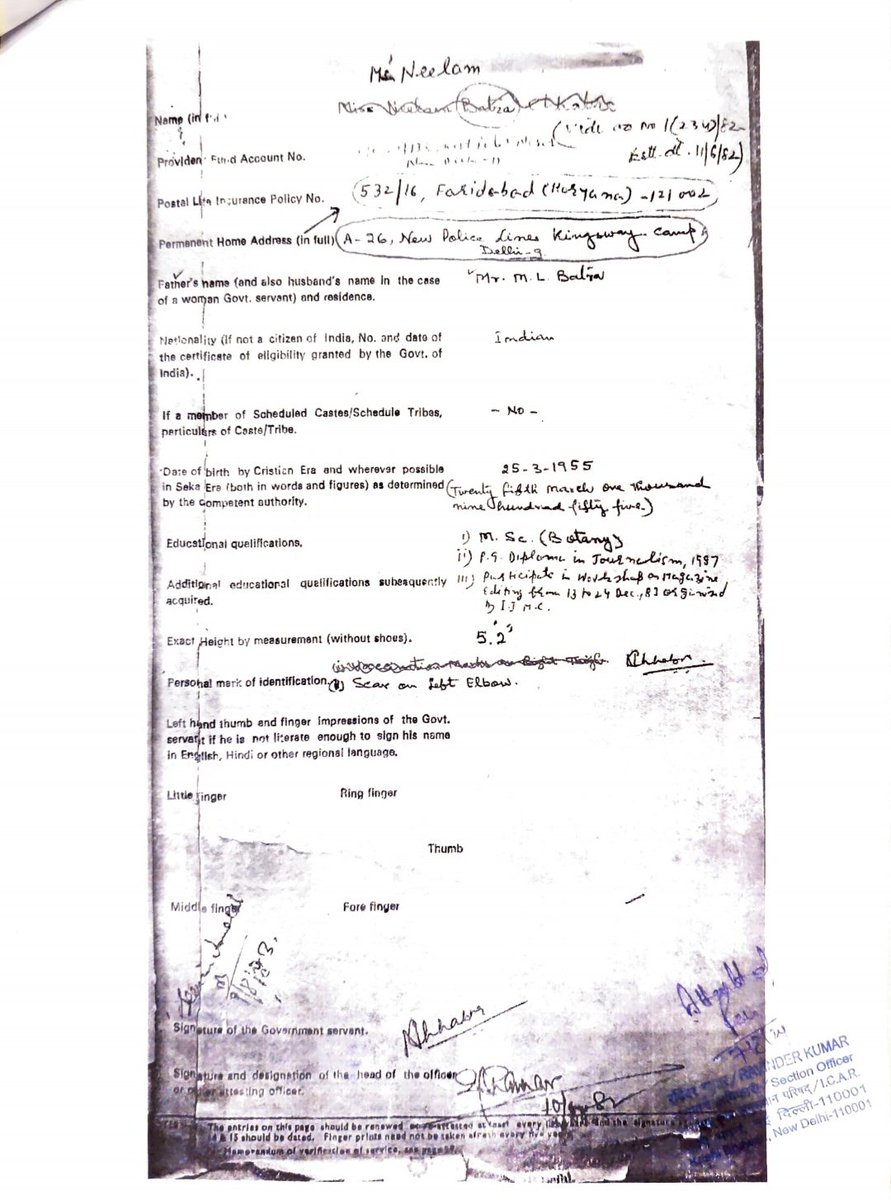 Neelam
Name (in f
Batra
(Vide oo no 1(234)/82
Estt. dt. 11/6/82)
Provident Fund Account No.
Postal Life Insurance Policy No.
532/16, Faridabad (Haryana) - 121002
Permanent Home Address (in full) A-26, New Police Lines Kingsway Camp
Delhi-9
Father's name (and also husband's name in the case
of a woman Govt. servant) and residence.
Mr. M. L. Batra
Nationality (if not a citizen of India, No. and date of
the certificate of eligibility granted by the Govt. of
India).
Indian
If a member of Scheduled Castes/Schedule Tribes,
particulars of Caste/Tribe.
- No -
Date of birth by Cristien Era and wherever possible
in Saka Era (both in words and figures) as determined
by the competent authority.
25-3-1955
(Twenty fifth March one thousand
nine hundred fifty five.)
Educational qualifications.
i) M. Sc. (Botany)
ii) P.G. Diploma in Journalism, 1987
Additional educational qualifications subsequently
acquired.
iii) Participate in Workshop on Magazine
Editing from 13 to 24 Dec., 83 organised
by I.I.M.C.
Exact Height by measurement (without shoes).
5'.2"
Personal mark of identification.
Scar on left Elbow.
Left hand thumb and finger impressions of the Govt.
servant if he is not literate enough to sign his name
in English, Hindi or other regional language.
Little finger
Ring finger
Thumb
Middle finger
Fore finger
Signature of the Government servant.
Signature and designation of the head of the officer
or other attesting officer.
The entries on this page should be renewed or re-attested at least every five years and the signature
14 & 15 should be dated. Finger prints need not be taken afresh every five years
Memorandum of verification of service,
Attested
/ RAVINDER KUMAR
/ Section Officer
परिषद / I.C.A.R.
दिल्ली-110001
New Delhi-110001